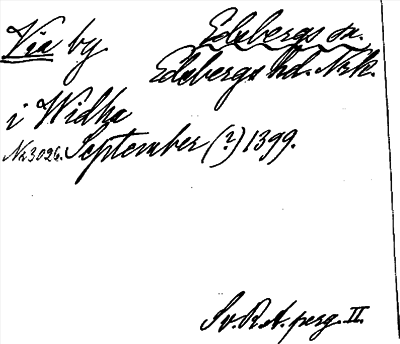 Via by.
Edsbergs sn.
Edsbergs hd. Nrk.
i Widha
Nr 3026. September (?) 1399.
Sv. R. A. perg. II.